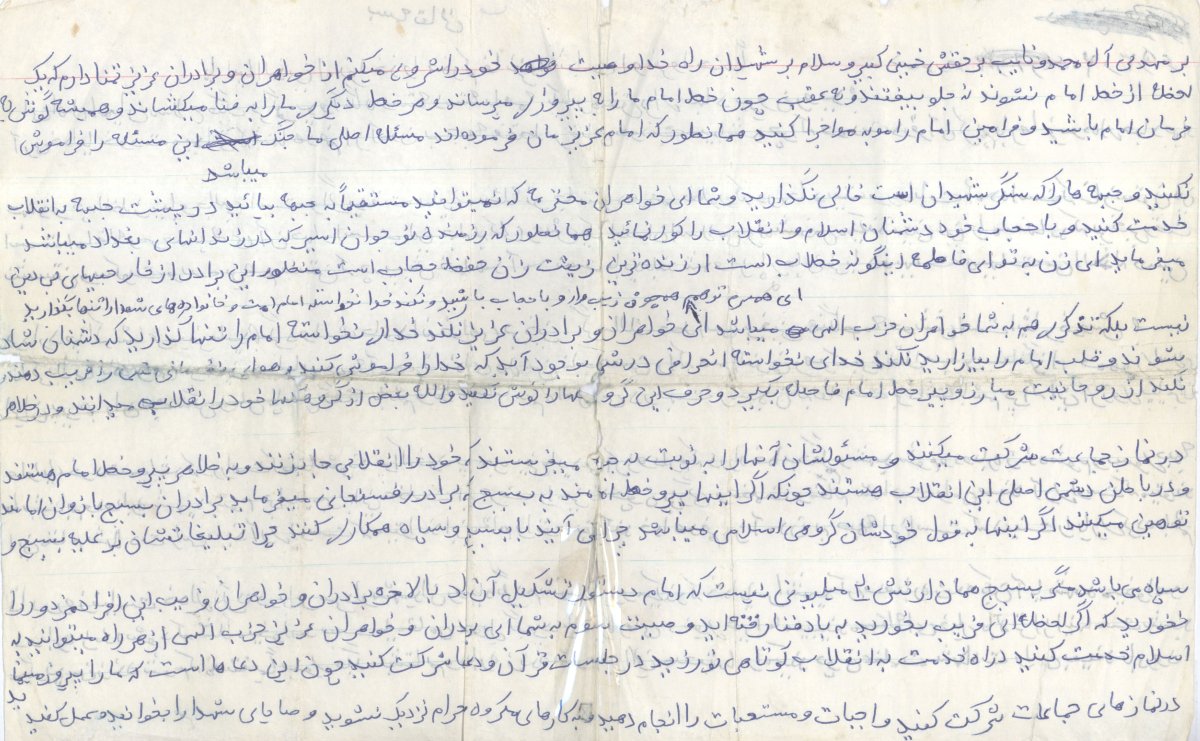 بر مهدی آل محمد و نایب برحقش خمینی کبیر و سلام بر شهیدان راه خدا وصیت خود را شروع میکنم از خواهران و برادران عزیز تمنا دارم که یک
لحظه از خط امام نشوند نه جلو بیفتند و نه عقب چون خط امام ما را به پیروزی میرساند و هر خط دیگری ما را به فنا میکشاند و همیشه گوش به
فرمان امام باشید و فرامین امام را موبه مو اجرا کنید همانطور که امام عزیزمان فرموده‌اند مسئله اصلی ما جنگ این مسئله را فراموش
میباشد
نکنید و جبهه ها را که سنگر شهیدان است خالی نگذارید و شما ای خواهران محترمه که نمیتوانید مستقیماً به جبهه بیائید در پشت جبهه به انقلاب
خدمت کنید و با حجاب خود دشمنان اسلام و انقلاب را کور نمائید همانطور که رزمنده نوجوان اسیر که در زندانهای بغداد میباشد
میفرماید ای زن به تو از فاطمه اینگونه خطاب است ارزنده ترین زینت زن حفظ حجاب است منظور این برادر از
ای همسر تو هم همچون زینب وار و با حجاب باشید و نکند خدا نخواسته امام امت و خانواده های شهدا را تنها بگذارید
نیست بلکه تذکری هم به شما خواهران حزب الهی میباشد ای خواهران و برادران عزیز نکند خدای نخواسته امام را تنها گذارید که دشمنان شاد
شوند و قلب امام را بیازارید نکند خدای نخواسته انحرافی در شما بوجود آید که خدا را فراموش کنید و هوای نفسانی شما را فریب دهند
نکند از روحانیت مبارز و پیر خط امام فاصله بگیرد و حرف این گروهها را گوش نکنید والله بعضی از گروهها خود را انقلاب میدانند و در ظاهر
در نماز جماعت شرکت میکنند و مسئولشان آنها را به نوبت به جبهه میفرستند که خود را انقلابی جا بزنند و به ظاهر پیرو خط امام هستند
و در باطن دشمن اصلی این انقلاب هستند چونکه اگر اینها پیرو خط امامند به بسیج که برادر رفسنجانی میفرماید برادران بسیج بازوان امامند
توهین میکنند اگر اینها به قول خودشان گروهی اسلامی میباشد چرا نمی آیند با بسیج و سپاه همکاری کنند چرا تبلیغاتشان بر علیه بسیج و
سپاه می باشد مگر بسیج همان ارتش ۲۰ میلیونی نیست که امام دستور تشکیل آن داد بالاخره برادران و خواهران فریب این افراد مزدور را
نخورید که اگر لحظه ای فریب بخورید به باد فنا رفته اید وصیت سوم به شما ای برادران و خواهران عزیز حزب الهی از هر راه میتوانید به
اسلام خدمت کنید در راه خدمت به انقلاب کوتاهی نورزید در جلسات قرآن و دعا شرکت کنید چون این دعا ها است که ما را پیروز مینما
ید
در نمازهای جماعات شرکت کنید واجبات و مستحبات را انجام دهید و به کارهای مکروه حرام نزدیک نشوید وصایای شهدا را بخوانید و عمل کنید